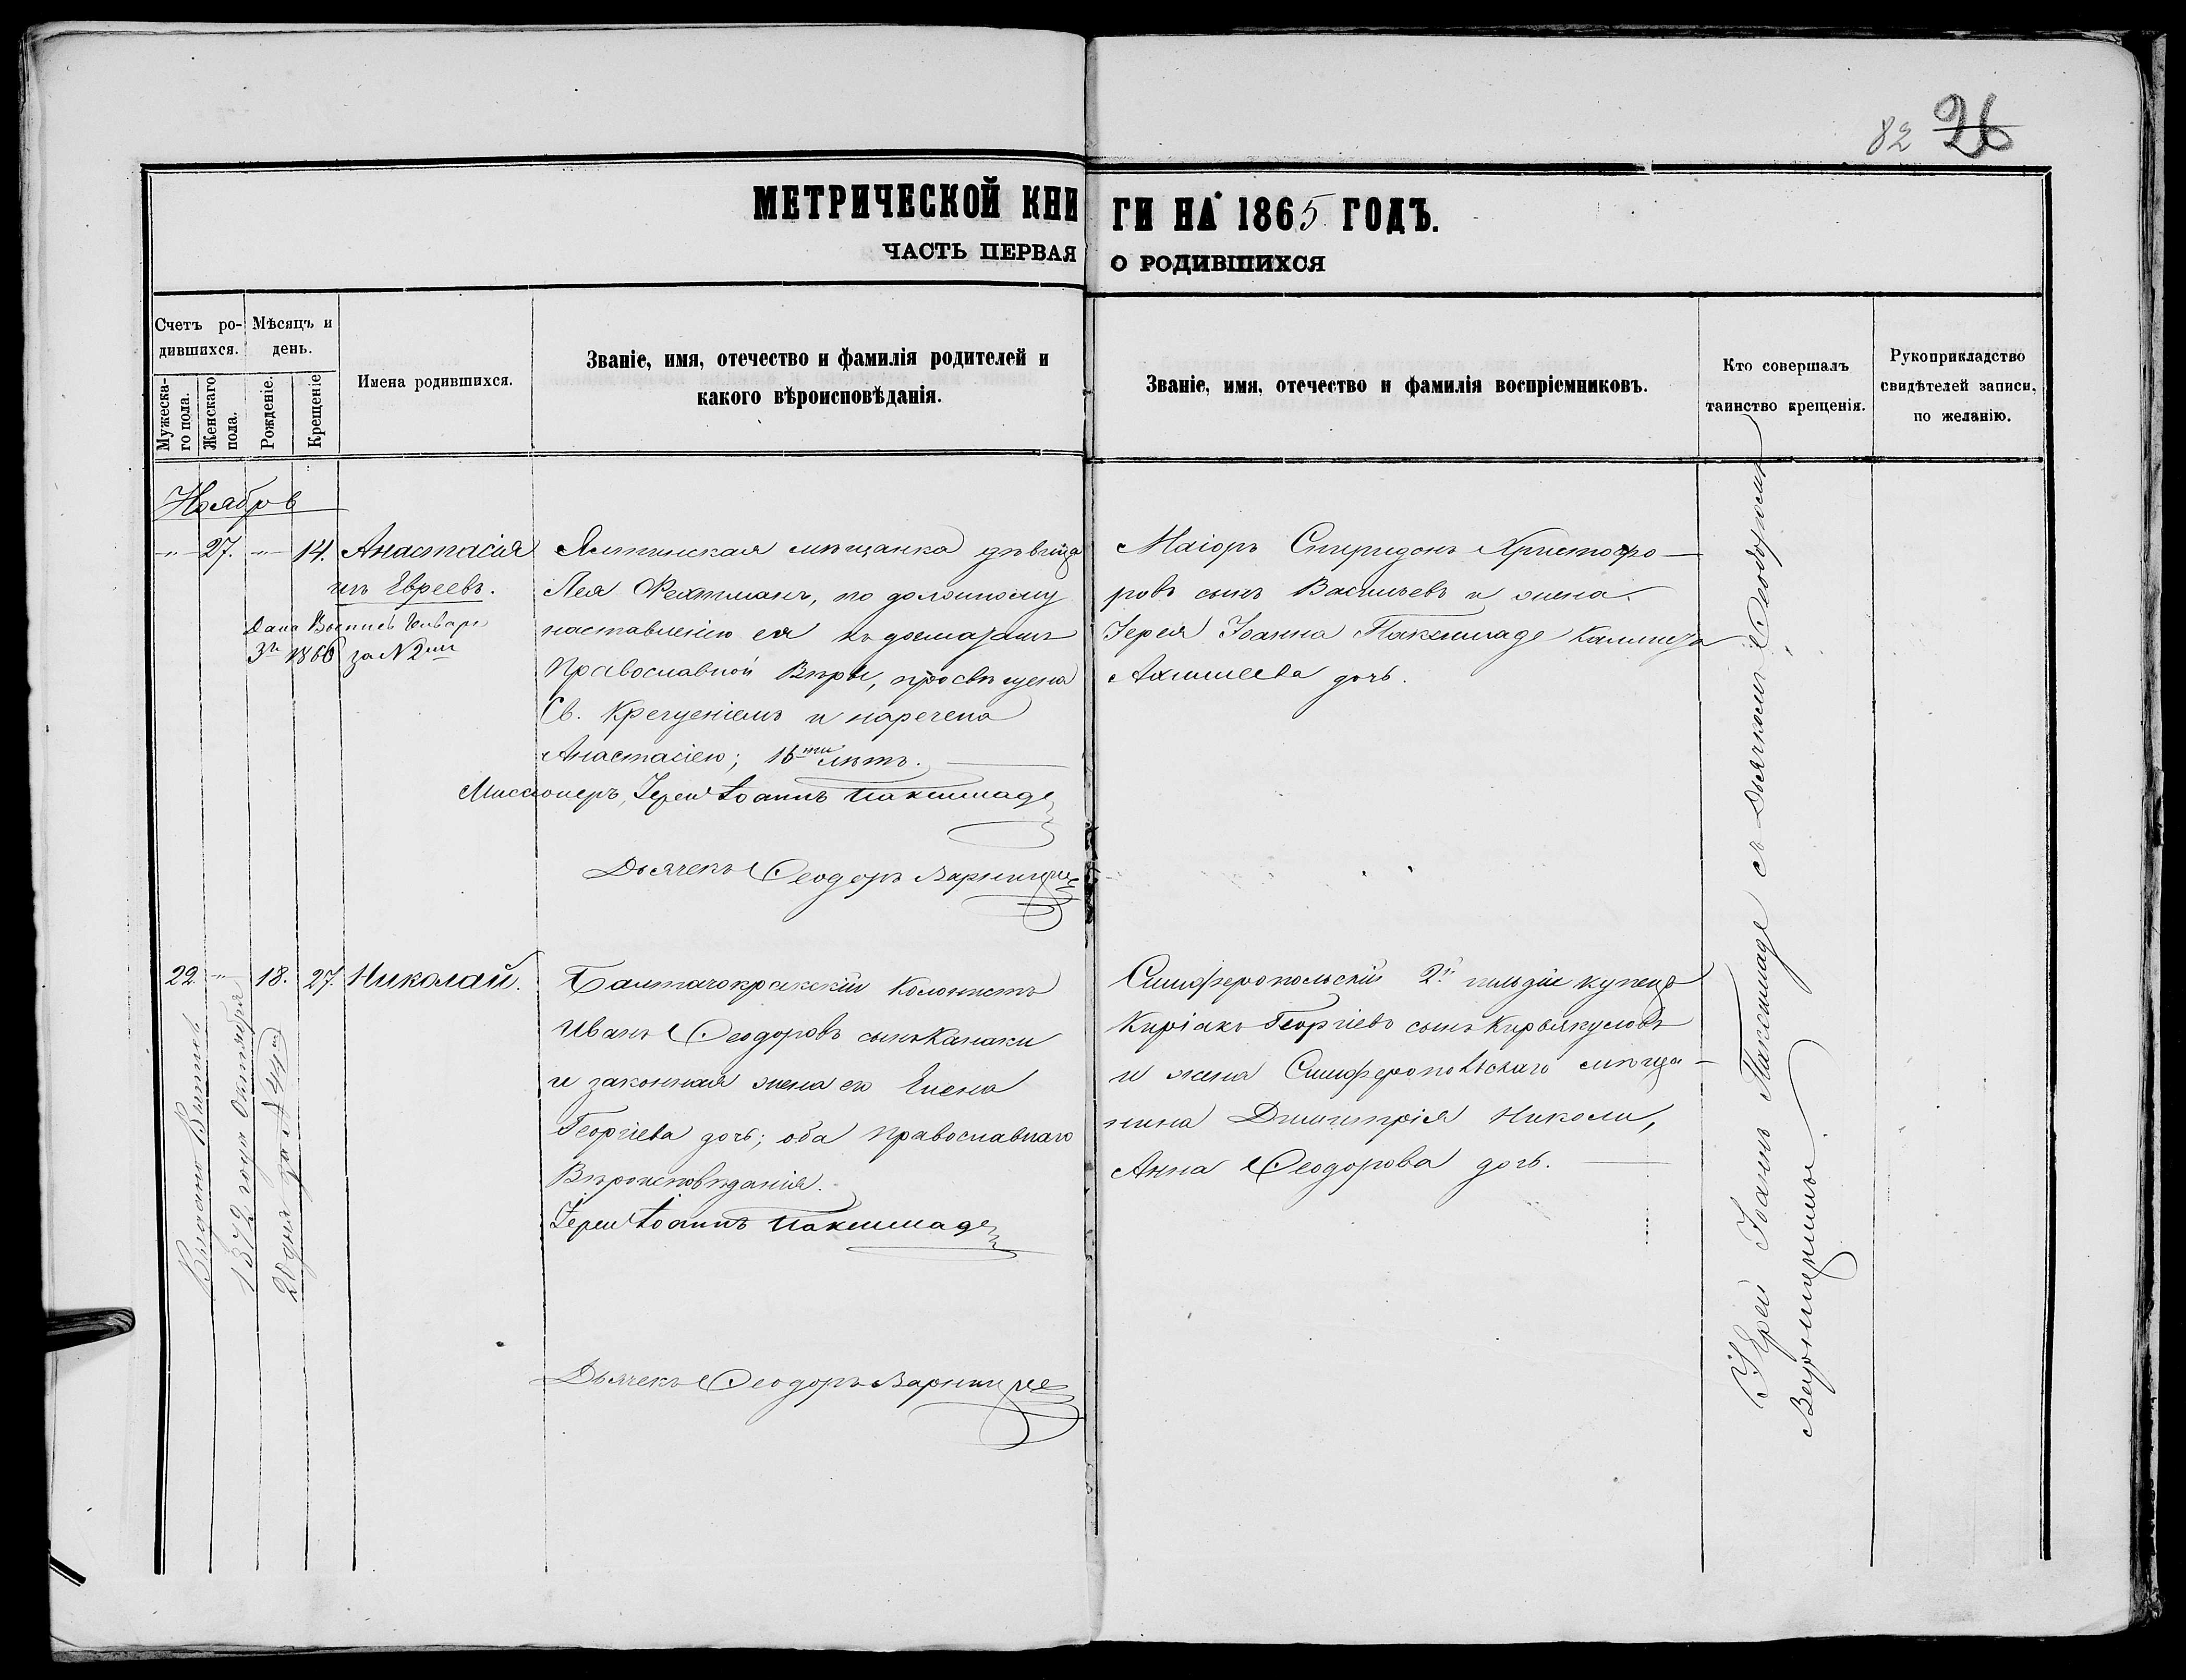 82 26
МЕТРИЧЕСКОЙ КНИГИ НА 1865 ГОДЪ.
ЧАСТЬ ПЕРВАЯ О РОДИВШИХСЯ
Счетъ ро-
дившихся.
Мужеска-
го пола.
Женскаго
пола.
Мѣсяцъ и
день.
Рожденіе.
Крещеніе
Имена родившихся.
Званіе, имя, отечество и фамилія родителей и
какого вѣроисповѣданія.
Званіе, имя, отечество и фамилія воспріемниковъ.
Кто совершалъ
таинство крещенія.
Рукоприкладство
свидѣтелей записи,
по желанію.
Ноябрь
„ 27. „ 14. Анастасія
изъ Евреевъ.
Дана Выпись Января
3го 1866 за N 2мъ
Ялтинская мѣщанка дѣвица
Лея Фехтманъ, по должному
наставленію ея къ догматамъ
Православной Вѣры, просвѣщена
Св. Крещеніемъ и наречена
Анастасіею; 16ти лѣтъ.
Миссіонеръ, Іерей Іоаннъ Паксимаде
Дьячекъ Ѳеодоръ
Маіоръ Спиридонъ Христофо-
ровъ сынъ Васильевъ и жена
Іерея Іоанна Паксимаде
дочь.
22. „ 18. 27. Николай.
Выдана Выпись
1872 года Октября
20 дня за N 41
Балтачокракскій Колонистъ
Иванъ Ѳеодоровъ сынъ Канаки
и законная жена его Елена
Георгіева дочь; оба Православнаго
Вѣроисповѣданія.
Іерей Іоаннъ Паксимаде
Дьячекъ Ѳеодоръ
Симферопольскій 2й гильдіи купецъ
Киріакъ Георгіевъ сынъ Кирьякуловъ
и жена Симферопольскаго мѣща-
нина Димитрія Николи,
Анна Ѳеодорова дочь.
Іерей Іоаннъ Паксимаде съ Дьячкомъ Ѳеодоромъ